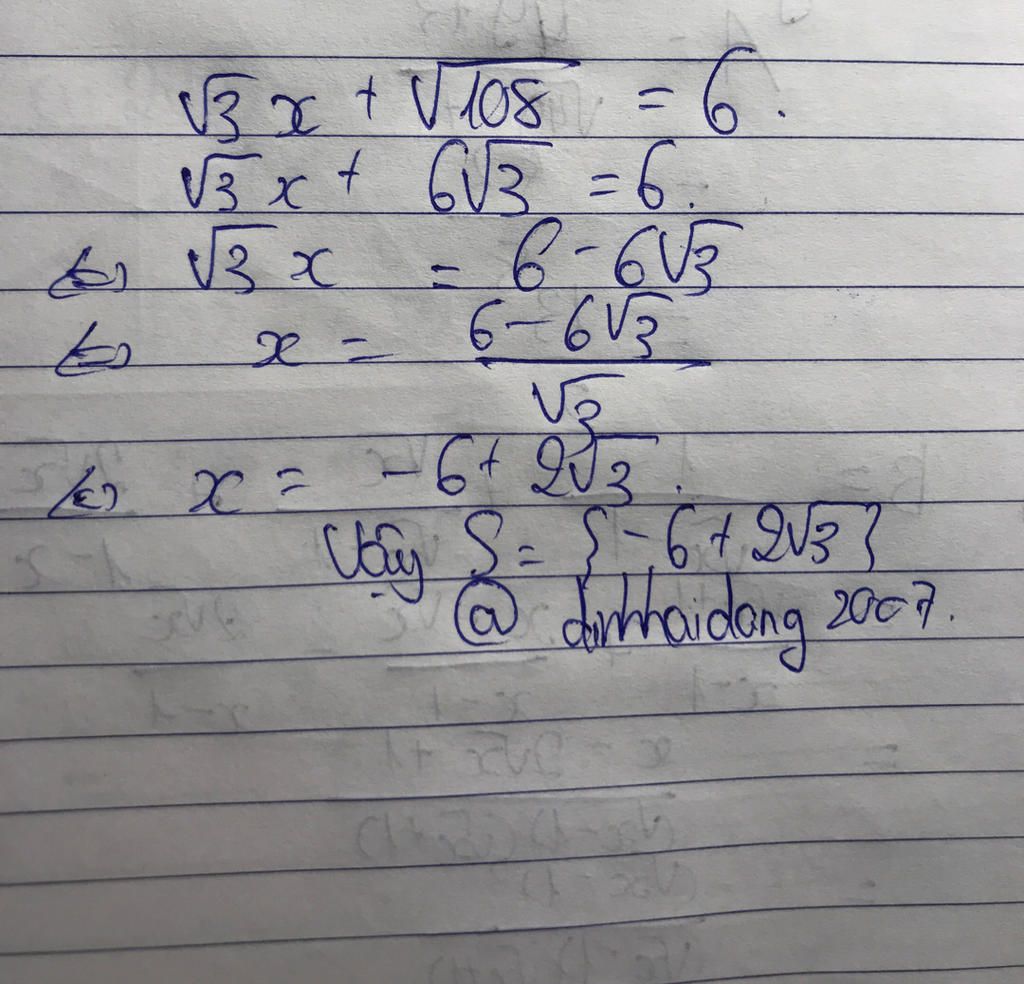 √3 x + √108 = 6.
√3 x + 6√3 = 6.
⇔ √3 x = 6 - 6√3
⇔ x = (6 - 6√3)/√3
⇔ x = -6 + 2√3.
Vậy S = {-6 + 2√3}
@ dinhhaidang 2007.